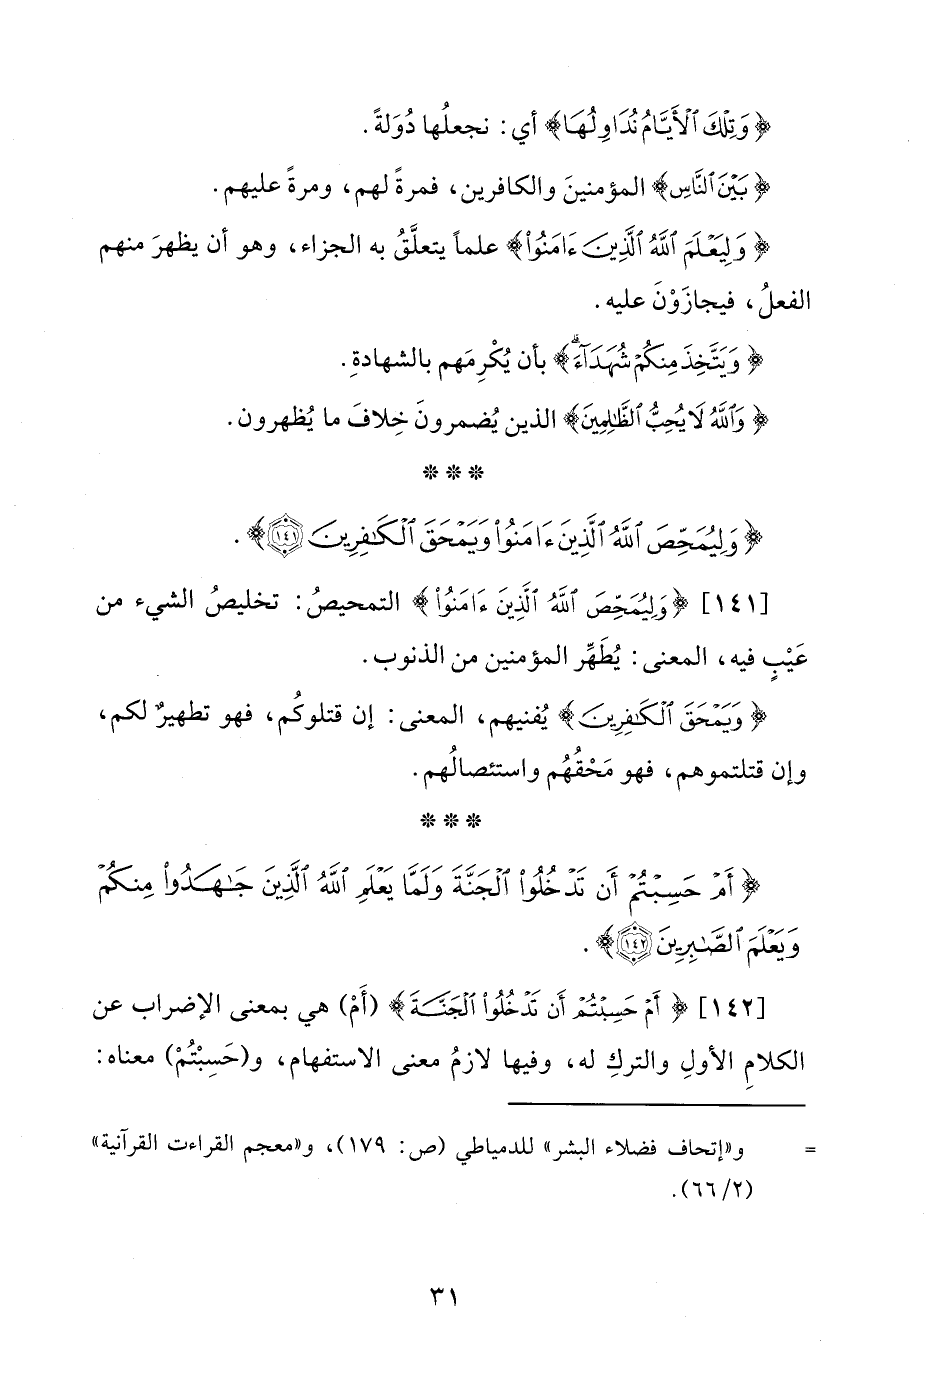 ﴿وَتِلْكَ ٱلْأَيَّامُ نُدَاوِلُهَا﴾ أي: نجعلُها دُوَلةً.
﴿بَيْنَ ٱلنَّاسِ﴾ المؤمنينَ والكافرين، فمرةً لهم، ومرةً عليهم.
﴿وَلِيَعْلَمَ ٱللَّهُ ٱلَّذِينَ ءَامَنُوا۟﴾ علماً يتعلَّقُ به الجزاء، وهو أن يظهرَ منهم
الفعلُ، فيجازَوْنَ عليه.
﴿وَيَتَّخِذَ مِنكُمْ شُهَدَآءَۗ﴾ بأن يُكْرِمَهم بالشهادةِ.
﴿وَٱللَّهُ لَا يُحِبُّ ٱلظَّـٰلِمِينَ﴾ الذين يُضمرونَ خِلافَ ما يُظهرون.
***
﴿وَلِيُمَحِّصَ ٱللَّهُ ٱلَّذِينَ ءَامَنُوا۟ وَيَمْحَقَ ٱلْكَـٰفِرِينَ ١٤١﴾.
[١٤١] ﴿وَلِيُمَحِّصَ ٱللَّهُ ٱلَّذِينَ ءَامَنُوا۟﴾ التمحيصُ: تخليصُ الشيء من
عَيْبٍ فيه، المعنى: يُطَهِّر المؤمنين من الذنوب.
﴿وَيَمْحَقَ ٱلْكَـٰفِرِينَ﴾ يُفنيهم، المعنى: إن قتلوكُم، فهو تطهيرٌ لكم،
وإن قتلتموهم، فهو مَحْقُهُم واستئصالُهم.
***
﴿أَمْ حَسِبْتُمْ أَن تَدْخُلُوا۟ ٱلْجَنَّةَ وَلَمَّا يَعْلَمِ ٱللَّهُ ٱلَّذِينَ جَـٰهَدُوا۟ مِنكُمْ
وَيَعْلَمَ ٱلصَّـٰبِرِينَ ١٤٢﴾.
[١٤٢] ﴿أَمْ حَسِبْتُمْ أَن تَدْخُلُوا۟ ٱلْجَنَّةَ﴾ (أَمْ) هي بمعنى الإضراب عن
الكلامِ الأولِ والتركِ له، وفيها لازمُ معنى الاستفهام، و(حَسِبْتُمْ) معناه:
= و«إتحاف فضلاء البشر» للدمياطي (ص: ١٧٩)، و«معجم القراءت القرآنية»
(٢/ ٦٦).
٣١